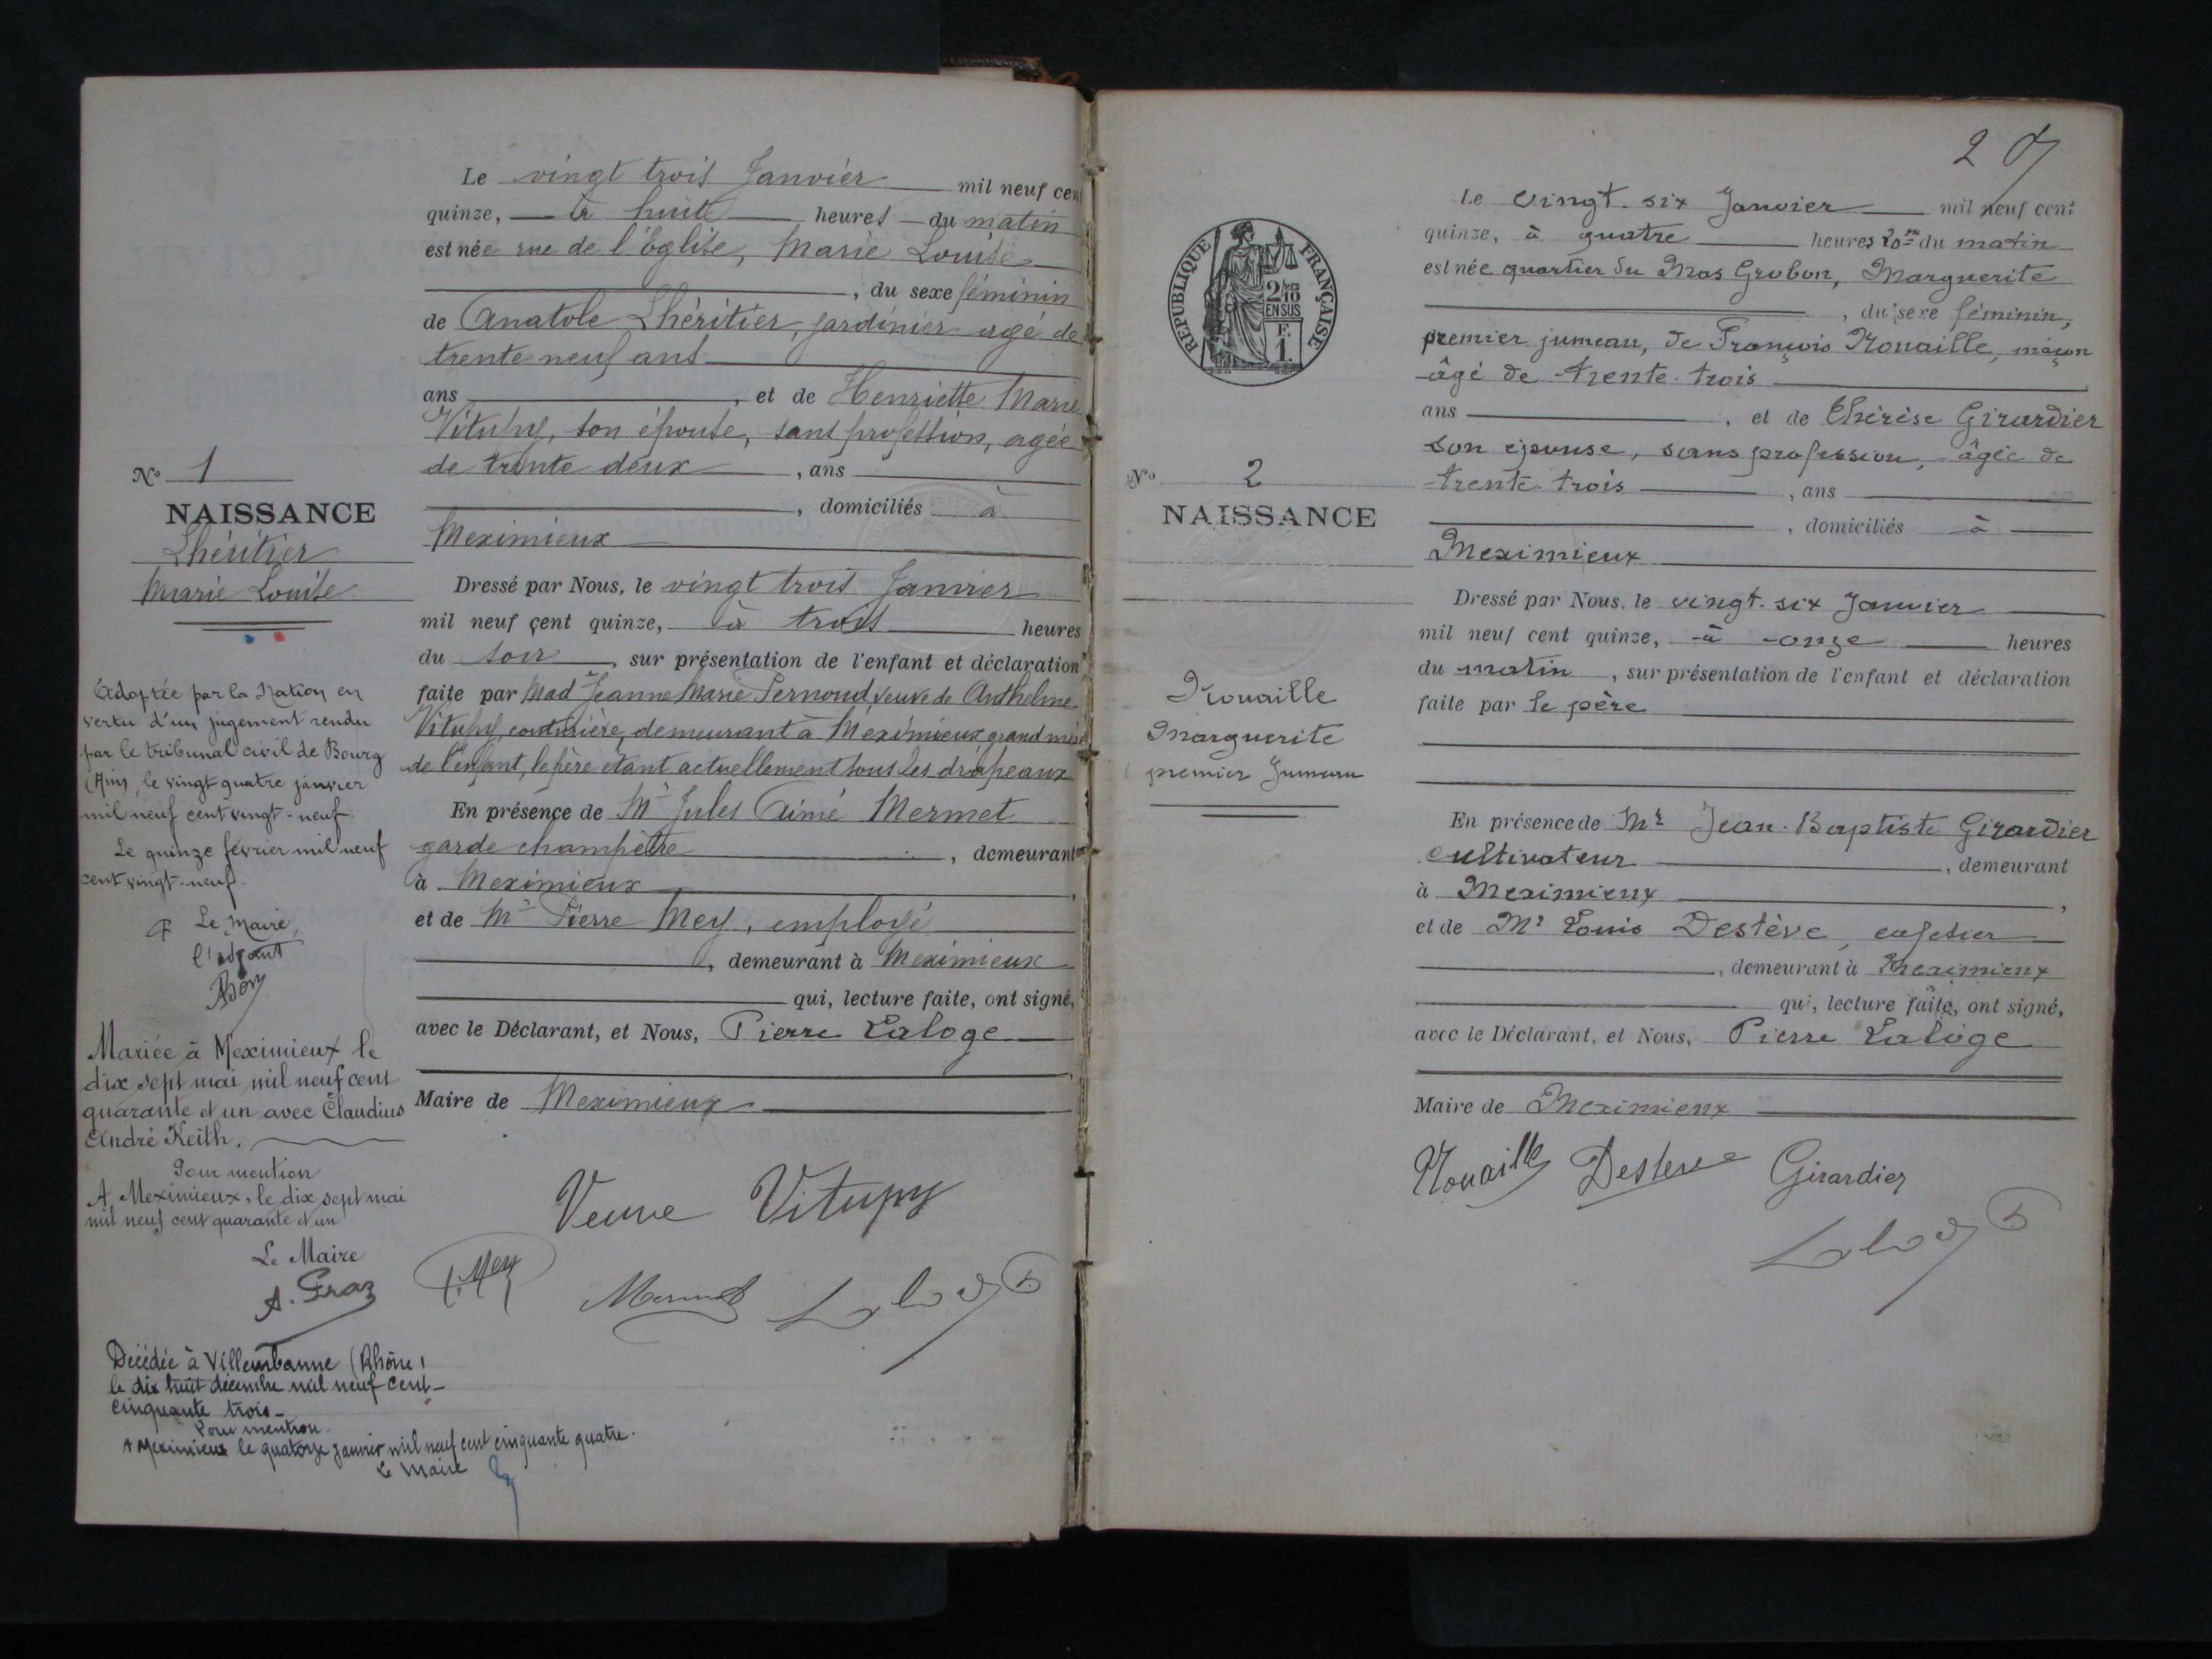 Le vingt trois Janvier mil neuf cent
quinze, à huit heures du matin
est née rue de l'Eglise, Marie Louise
, du sexe féminin
de Anatole Lhéritier, jardinier agé de
trente neuf ans
ans , et de Henriette Marie
Vitupy, son épouse, sans profession, agée
de trente deux , ans
, domiciliés à
Meximieux
Dressé par Nous, le vingt trois Janvier
mil neuf cent quinze, à trois heures
du soir , sur présentation de l'enfant et déclaration
faite par Mad Jeanne Marie Pernoud veuve de Anthelme
Vitupy, couturière, demeurant à Meximieux grand mère
de l'enfant, le père étant actuellement sous les drapeaux
En présence de Mr Jules Aimé Mermet
garde champêtre , demeurant
à Meximieux
et de Mr Pierre Mey, employé
, demeurant à Meximieux
qui, lecture faite, ont signé,
avec le Déclarant, et Nous, Pierre Laloge
Maire de Meximieux
Veuve Vitupy
P. Mey Mermet Laloge
No 1
NAISSANCE
Lhéritier
Marie Louise
Adoptée par la Nation en
vertu d'un jugement rendu
par le tribunal civil de Bourg
(Ain), le vingt quatre janvier
mil neuf cent vingt-neuf.
Le quinze février mil neuf
cent vingt-neuf.
Le Maire,
l'adjoint
Mariée à Meximieux le
dix sept mai mil neuf cent
quarante et un avec Claudius
André Keith.
Pour mention
A Meximieux, le dix sept mai
mil neuf cent quarante et un
Le Maire
Décédée à Villeurbanne (Rhône)
le dix huit décembre mil neuf cent
cinquante trois
Pour mention.
A Meximieux le quatorze janvier mil neuf cent cinquante quatre.
Le Maire
2
RÉPUBLIQUE FRANÇAISE
2/10
EN SUS
F.
1.
Le vingt-six Janvier mil neuf cent
quinze, à quatre heures 20m du matin
est née quartier du Mas Grobon, Marguerite
, du sexe féminin,
premier jumeau, de François Nouaille, maçon
âgé de trente-trois
ans , et de Thérèse Girardier
son épouse, sans profession, âgée de
trente-trois , ans
, domiciliés à
Meximieux
Dressé par Nous, le vingt-six Janvier
mil neuf cent quinze, à onze heures
du matin , sur présentation de l'enfant et déclaration
faite par le père
En présence de Mr Jean-Baptiste Girardier
cultivateur , demeurant
à Meximieux ,
et de Mr Louis Destève, cafetier
, demeurant à Meximieux
qui, lecture faite, ont signé,
avec le Déclarant, et Nous, Pierre Laloge
Maire de Meximieux
Nouaille Desteve Girardier
Laloge
No 2
NAISSANCE
Nouaille
Marguerite
premier Jumeau